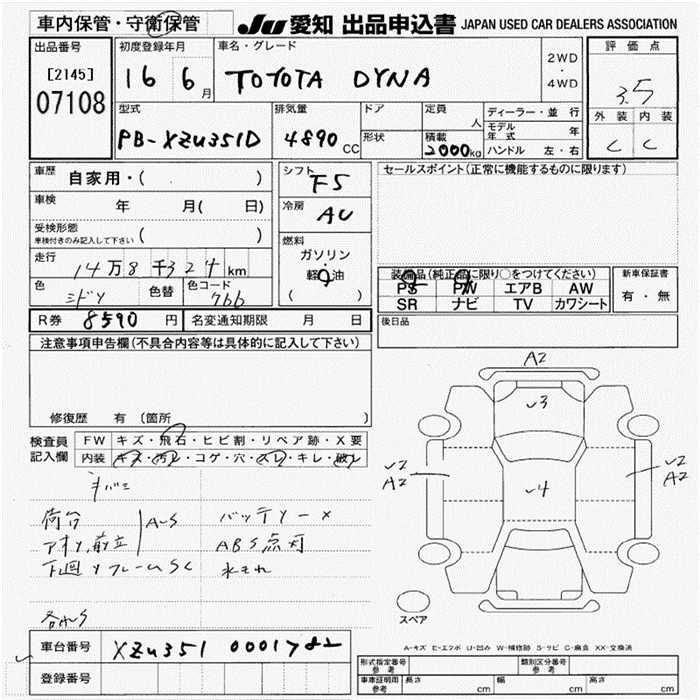 車内保管・守衛保管
JU 愛知 出品申込書 JAPAN USED CAR DEALERS ASSOCIATION
出品番号
[2145]
07108
初度登録年月
16 6月
車名・グレード
TOYOTA DYNA
2WD
・
4WD
評価点
3.5
外装 内装
C C
型式
PB-XZU351D
排気量
4890 CC
ドア
形状
定員
人
積載
2000kg
ディーラー・並行
モデル年式 年
ハンドル 左・右
車歴
自家用・( )
車検
年 月( 日)
受検形態
車検付きのみ記入して下さい ( )
走行
14万8千324km
色
ミドリ
色替
色コード
7bb
シフト
F5
冷房
AC
燃料
ガソリン
・
軽油
( )
セールスポイント(正常に機能するものに限ります)
装備品(純正品に限り○をつけてください)
PS PW エアB AW
SR ナビ TV カワシート
新車保証書
有・無
後日品
R券 8590円
名変通知期限 月 日
注意事項申告欄(不具合内容等は具体的に記入して下さい)
修復歴 有(箇所 )
検査員
記入欄
FW キズ・飛石・ヒビ割・リペア跡・X要
内装 キズ・汚レ・コゲ・穴・スレ・キレ・破レ
荷台
アオリ,前立
A-S
バッテリー×
ABS点灯
下回リフレームSC
水もれ
A2
✓3
✓4
✓2
A2
✓2
A2
スペア
A-キズ E-エクボ U-凹み W-補修跡 S-サビ C-腐食 XX-交換済
車台番号
XZU351 0001782
登録番号
形式指定番号
参考
類別区分番号
参考
車庫証明用
参考
長さ cm
幅 cm
高さ cm